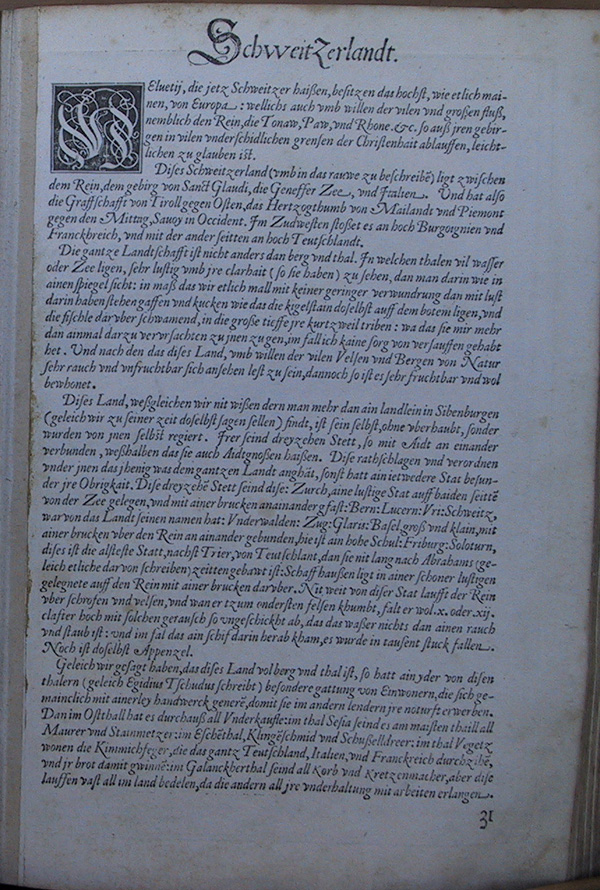 Schweitzerlandt.
Eluetij, die jetz Schweitzer haißen, besitzen das hochst, wie etlich mai-
nen, von Europa: wellichs auch vmb willen der vilen vnd großen fluß,
nemblich den Rein, die Tonaw, Paw, vnd Rhone. &c. so auß jren gebir-
gen in vilen vnderschidlichen grensen der Christenhait ablauffen, leicht-
lichen zu glauben ist.
Dises Schweitzerland (vmb in das rauwe zu beschreibē) ligt zwischen
dem Rein, dem gebirg von Sanct Glaudi, die Geneffer Zee, vnd Jtalien. Vnd hat also
die Graffschafft von Tiroll gegen Osten, das Hertzogthumb von Mailandt vnd Piemont
gegen den Mittag, Sauoy in Occident. Jm Zudwesten stoßet es an hoch Burgoignien vnd
Franckhreich, vnd mit der ander seitten an hoch Teutschlandt.
Die gantze Landtschafft ist nicht anders dan berg vnd thal. Jn welchen thalen vil wasser
oder Zee ligen, sehr lustig vmb jre clarhait (so sie haben) zu sehen, dan man darin wie in
ainen spiegel sicht: in maß das wir etlich mall mit keiner geringer verwundrung dan mit lust
darin haben stehen gaffen vnd kucken wie das die kigelstain doselbst auff dem botem ligen, vnd
die fischle darvber schwamend, in die große tieffe jre kurtzweil triben: wa das sie mir mehr
dan ainmal darzu vervrsachten zu jnen zugen, im fall ich kaine sorg von versauffen gehabt
het. Vnd nach den das dises Land, vmb willen der vilen Velsen vnd Bergen von Natur
sehr rauch vnd vnfruchtbar sich ansehen lest zu sein, dannoch so ist es sehr fruchtbar vnd wol
bewhonet.
Dises Land, weßgleichen wir nit wißen dern man mehr dan ain landlein in Sibenburgen
(geleich wir zu seiner zeit doselbst sagen sellen) findt, ist sein selbst, ohne vberhaubt, sonder
wurden von jnen selbst regiert. Jrer seind dreyzehen Stett, so mit Aidt an einander
verbunden, weßhalben das sie auch Aidtgnoßen haißen. Dise rathschlagen vnd verordnen
vnder jnen das jhenig was dem gantzen Landt anghät, sonst hatt ain ietwedere Stat besun-
der jre Obrigkait. Dise dreyzehē Stett seind dise: Zurch, aine lustige Stat auff baiden seittē
von der Zee gelegen, vnd mit ainer brucken an ainander gfast: Bern: Lucern: Vri: Schweitz,
war von das Landt seinen namen hat: Vnderwalden: Zug: Glaris: Basel groß vnd klain, mit
ainer brucken vber den Rein an ainander gebunden, hie ist ain hohe Schul: Friburg: Soloturn,
dises ist die alsteste Statt, nachst Trier, von Teutschlant, dan sie nit lang nach Abrahams (ge-
leich etliche darvon schreiben) zeitten gebawt ist: Schaffhaußen ligt in ainer schoner lustigen
gelegnete auff den Rein mit ainer brucken darvber. Nit weit von diser Stat laufft der Rein
vber schrofen vnd velsen, vnd wan er tzum ondersten felsen khumbt, falt er wol. x. oder. xij.
clafter hoch mit solchen gerausch so vngeschickht ab, das das waßer nichts dan ainen rauch
vnd staub ist: vnd im fal das ain schif darin herab kham, es wurde in tausent stuck fallen.
Noch ist doselbst Appenzel.
Geleich wir gesagt haben, das dises Land vol berg vnd thal ist, so hatt ain yder von disen
thalern (geleich Egidius Tschudus schreibt) besondere gattung von Einwonern, die sich ge-
mainclich mit ainerley handwerck generē, domit sie im andern lendern jre noturft erwerben.
Dan im Ostthall hat es durchauß all Vnderkaufle: im thal Sesia seind es am maisten thaill all
Maurer vnd Stainmetzer: im Eschēthal, Klingēschmid vnd Schußelldreer: im thal Vegetz
wonen die Kimmichfeger, die das gantz Teutschland, Italien, vnd Franckreich durchzihē,
vnd jr brot damit gwinnē: im Galanckherthal seind all Korb vnd Kretzenmacher, aber dise
lauffen vast all im land bedelen, da die andern all jre vnderhaltung mit arbeiten erlangen.
31